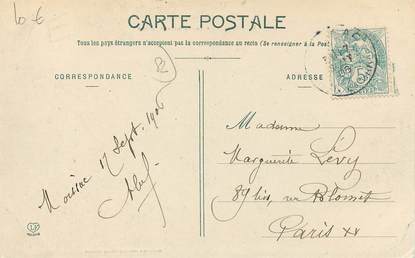 10 €
CARTE POSTALE
Tous les pays étrangers n'acceptent pas la correspondance au recto (Se renseigner à la Poste)
CORRESPONDANCE
ADRESSE
Moissac 17 Sept. 1906
Madame
Marguerite Levy
89 bis, rue Blomet
Paris XV